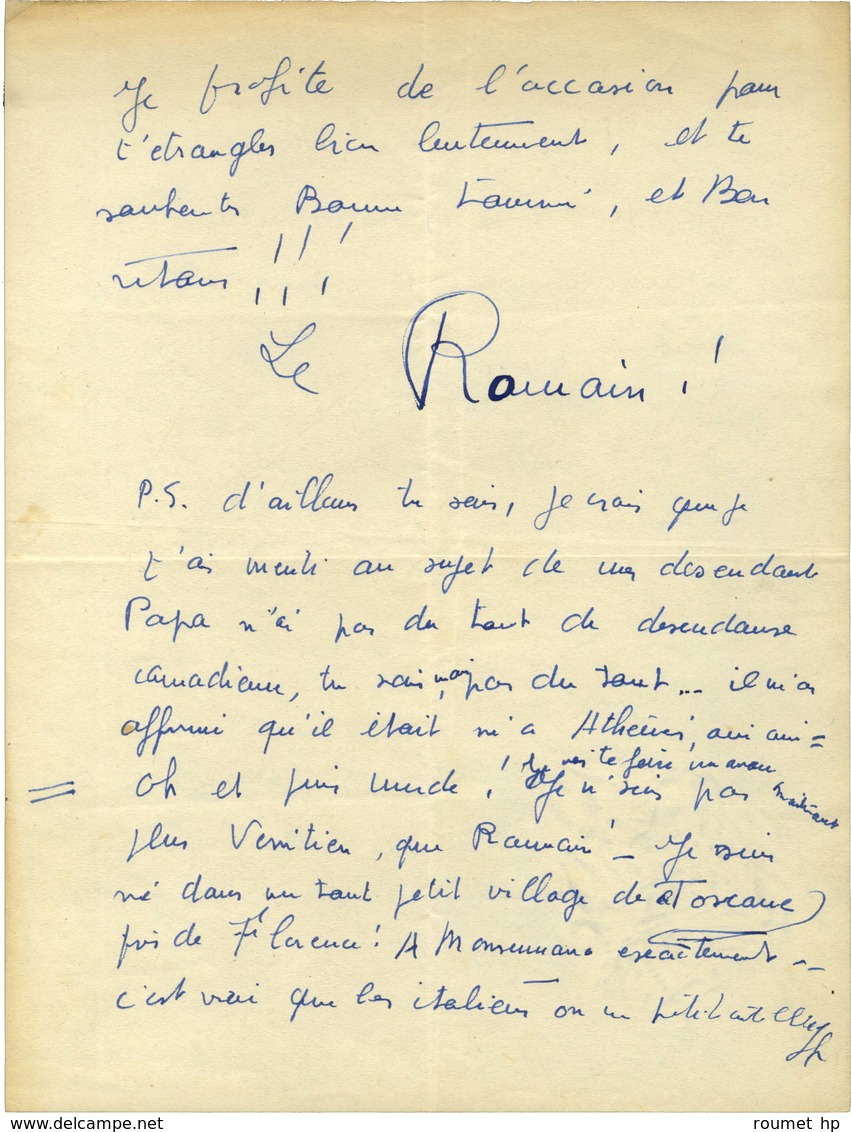 Je profite de l'occasion pour
t'étrangler bien lentement, et te
souhaiter Bonne tournée, et Bon
retour !!!
Le Romain !
P.S. d'ailleurs tu sais, je crois que je
t'ai menti au sujet de mes descendants
Papa n'ai pas du tout de descendanse
canadienne, tu sais, mais pas du tout... il m'a
affirmé qu'il était né a Athènes, oui oui =
oh et puis merde ! Je vais te faire un aveu maintenant
Je n'suis pas
plus Venitien, que Romain ! _ Je suis
né dans un tout petit village de Toscane
près de Florence ! A Monsummano exactement --
c'est vrai que les italiens on un petit coté